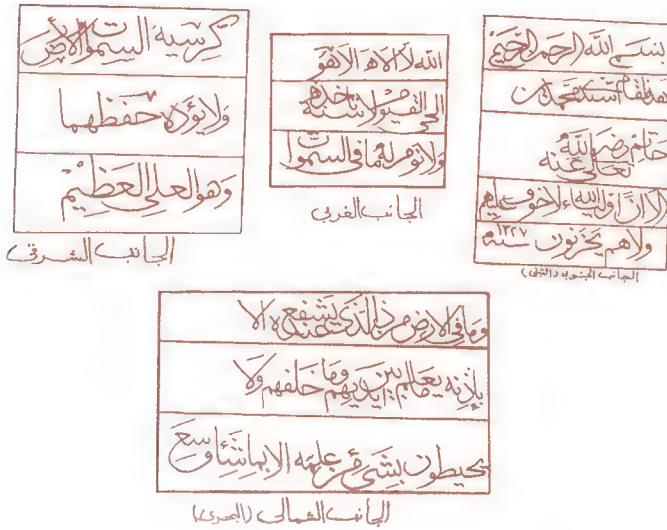 بسم الله الرحمن الرحيم
هذا مقام السيد محمد بن
حاتم رضي الله
تعالى عنه
الا ان اولياء الله لا خوف عليهم
ولا هم يحزنون سنة ١٣٢٧
الجانب الجنوبي (القبلي)
الله لا اله الا هو
الحي القيوم لا تاخذه سنة
ولا نوم له ما في السموات
الجانب الغربي
كرسيه السموات والأرض
ولا يؤده حفظهما
وهو العلي العظيم
الجانب الشرقي
وما في الارض من ذا الذي يشفع عنده الا
بإذنه يعلم ما بين ايديهم وما خلفهم ولا
يحيطون بشيء من علمه الا بما شاء وسع
الجانب الشمالي (البحري)